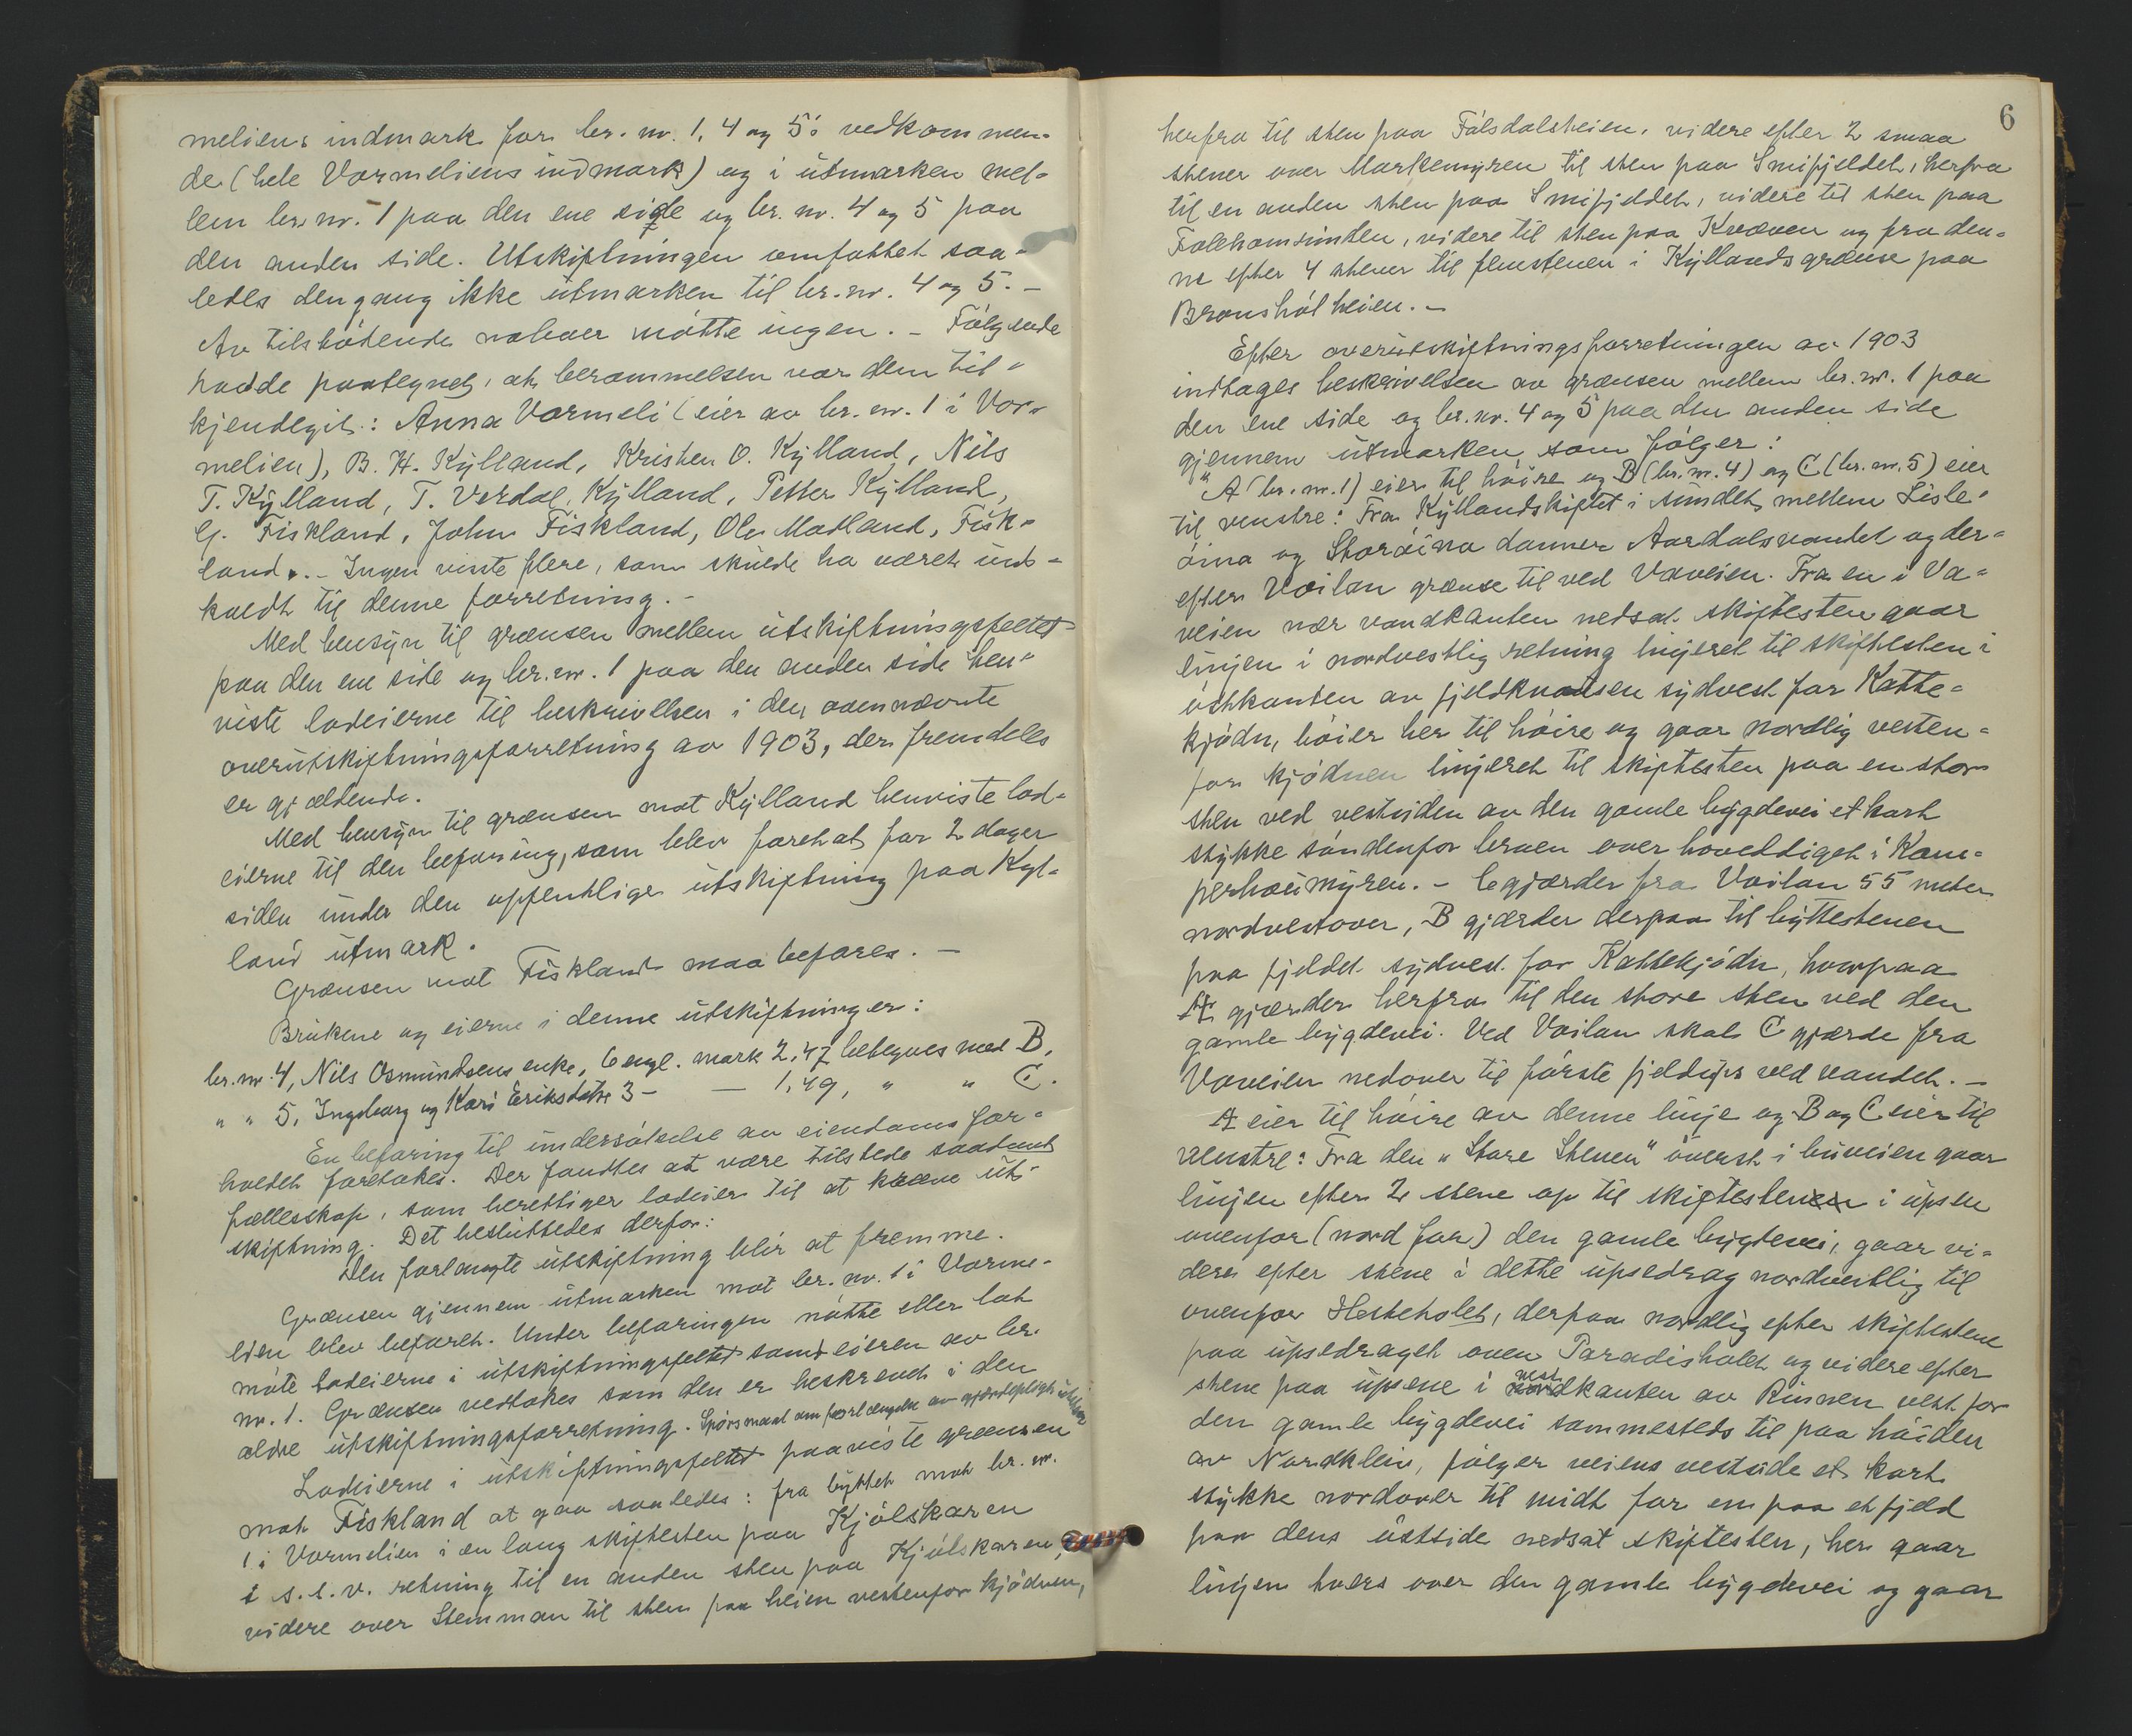 meliens indmark for br. nr. 1, 4 og 5's vedkommen-
de (hele Vormeliens indmark) og i utmarken mel-
lem br. nr. 1 paa den ene side og br. nr. 4 og 5 paa
den anden side. Utskiftningen omfattet saa-
ledes dengang ikke utmarken til br. nr. 4 og 5. -
Av tilstötende naboer mötte ingen. - Fölgende
hadde paategnet, at berammelsen var dem til-
kjendegit: Anna Vormeli (eier av br. nr. 1 i Vor-
melien), B. H. Kylland, Kristen O. Kylland, Nils
T. Kylland, T. Verdal, Kylland, Petter Kylland,
G. Fiskland, John Fiskland, Ole Madland, Fisk-
land. - Ingen visste flere, som skulde ha været ind-
kaldt til denne forretning. -
Med hensyn til grænsen mellem utskiftningsfeltet
paa den ene side og br. nr. 1 paa den anden side hen-
viste lodeierne til beskrivelsen i den ovennævnte
overutskiftningsforretning av 1903, der fremdeles
er gjældende.
Med hensyn til grænsen mot Kylland henviste lod-
eierne til den befaring, som blev foretat for 2 dager
siden under den offentlige utskiftning paa Kyl-
land utmark.
Grænsen mot Fiskland maa befares. -
Brukene og eierne i denne utskiftning er:
br. nr. 4, Nils Osmundsens enke, 6 engl. mark 2,47 betegnes med B.
" " 5, Ingeborg og Kari Eriksdatre 3 - — 1,49, " " C.
En befaring til undersökelse av eiendomsfor-
holdet foretokes. Der fandtes at være tilstede saadant
fællesskap, som berettiger lodeier til at kræve ut-
skiftning. Det besluttedes derfor:
Den forlangte utskiftning blir at fremme.
Grænsen gjennem utmarken mot br. nr. 1 i Vorme-
lien blev befaret. Under befaringen måtte eller lot
möte lodeierne i utskiftningsfeltet samt eieren av br.
nr. 1. Grænsen vedtokes som den er beskrevet i den
ældre utskiftningsforretning. Spörsmaal om forlængelse av gjærdepligt
Lodeierne i utskiftningsfeltet paaviste grænsen
mot Fiskland at gaa saaledes: fra byttet mot br. nr.
1 i Vormelien i en lang skiftesten paa Kjölskaren
i s.s.v. retning til en anden sten paa Kjölskaren,
videre over Stemman til sten paa heien vestenfor kjödnen,
6
herfra til sten paa Fålsdalsheien, videre efter 2 smaa
stener over Markemyren til sten paa Smifjeldet, herfra
til en anden sten paa Smifjeldet, videre til sten paa
Folehomsunden, videre til sten paa Kvæven og fra den-
ne efter 4 stener til flenstenen i Kyllandsgrænse paa
Bronshölheien. -
Efter overutskiftningsforretningen av 1903
indtages beskrivelsen av grænsen mellem br. nr. 1 paa
den ene side og br. nr. 4 og 5 paa den anden side
gjennem utmarken som fölger:
"A (br. nr. 1) eier til höire og B (br. nr. 4) og C (br. nr. 5) eier
til venstre: Fra Kyllandskiftet i sundet mellem Lisle-
åina og Storåina danner Aardalsvandet og der-
efter Voilan grænse til ved Vaveien. Fra en i Va-
veien nær vandkanten nedsat skiftesten gaar
linjen i nordvestlig retning linjeret til skiftesten i
östkanten av fjeldknatten sydvest for Katte-
kjödn, böier her til höire og gaar nordlig vesten-
for kjödnen linjeret til skiftesten paa en stor
sten ved vestsiden av den gamle bygdevei et kort
stykke söndenfor broen over hoveddiget i Kam-
perhaumyren. - C gjærder fra Voilan 55 meter
nordvestover, B gjærder derpaa til byttestenen
paa fjeldet sydvest for Kattekjödn, hvorpaa
A gjærder herfra til den store sten ved den
gamle bygdevei. Ved Voilan skal C gjærde fra
Vaveien nedover til förste fjeldups ved vandet. -
A eier til höire av denne linje og B og C eier til
venstre: Fra den "Store Stenen" överst i buveien gaar
linjen efter 2 stene op til skiftesten i upsen
ovenfor (nord for) den gamle bygdevei, gaar vi-
dere efter stene i dette upsedrag nordvestlig til
ovenfor Hesteholet, derpaa nordlig efter skiftestene
paa upsedraget oven Paradisholet og videre efter
stene paa upsene i vestkanten av Rinnen vest for
den gamle bygdevei sammesteds til paa höiden
av Nordkleiv, fölger veiens vestside et kort
stykke nordover til midt for en paa et fjeld
paa dens östside nedsat skiftesten, her gaar
linjen tvers over den gamle bygdevei og gaar